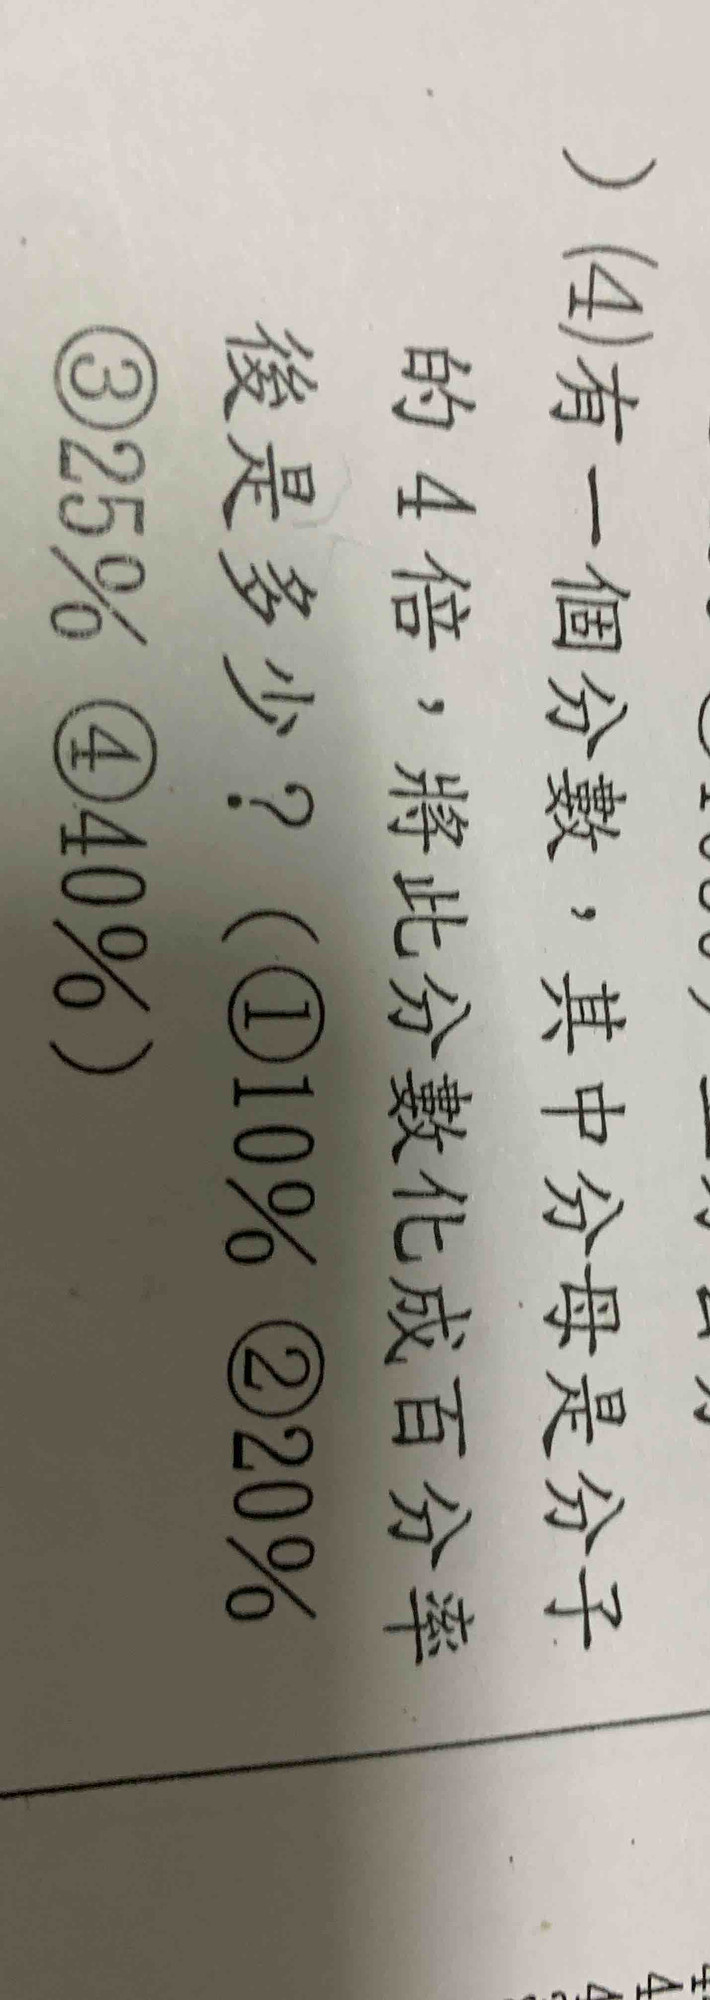 )(4)有一個分數，其中分母是分子
的4倍，將此分數化成百分率
後是多少？(①10% ②20%
③25% ④40%)